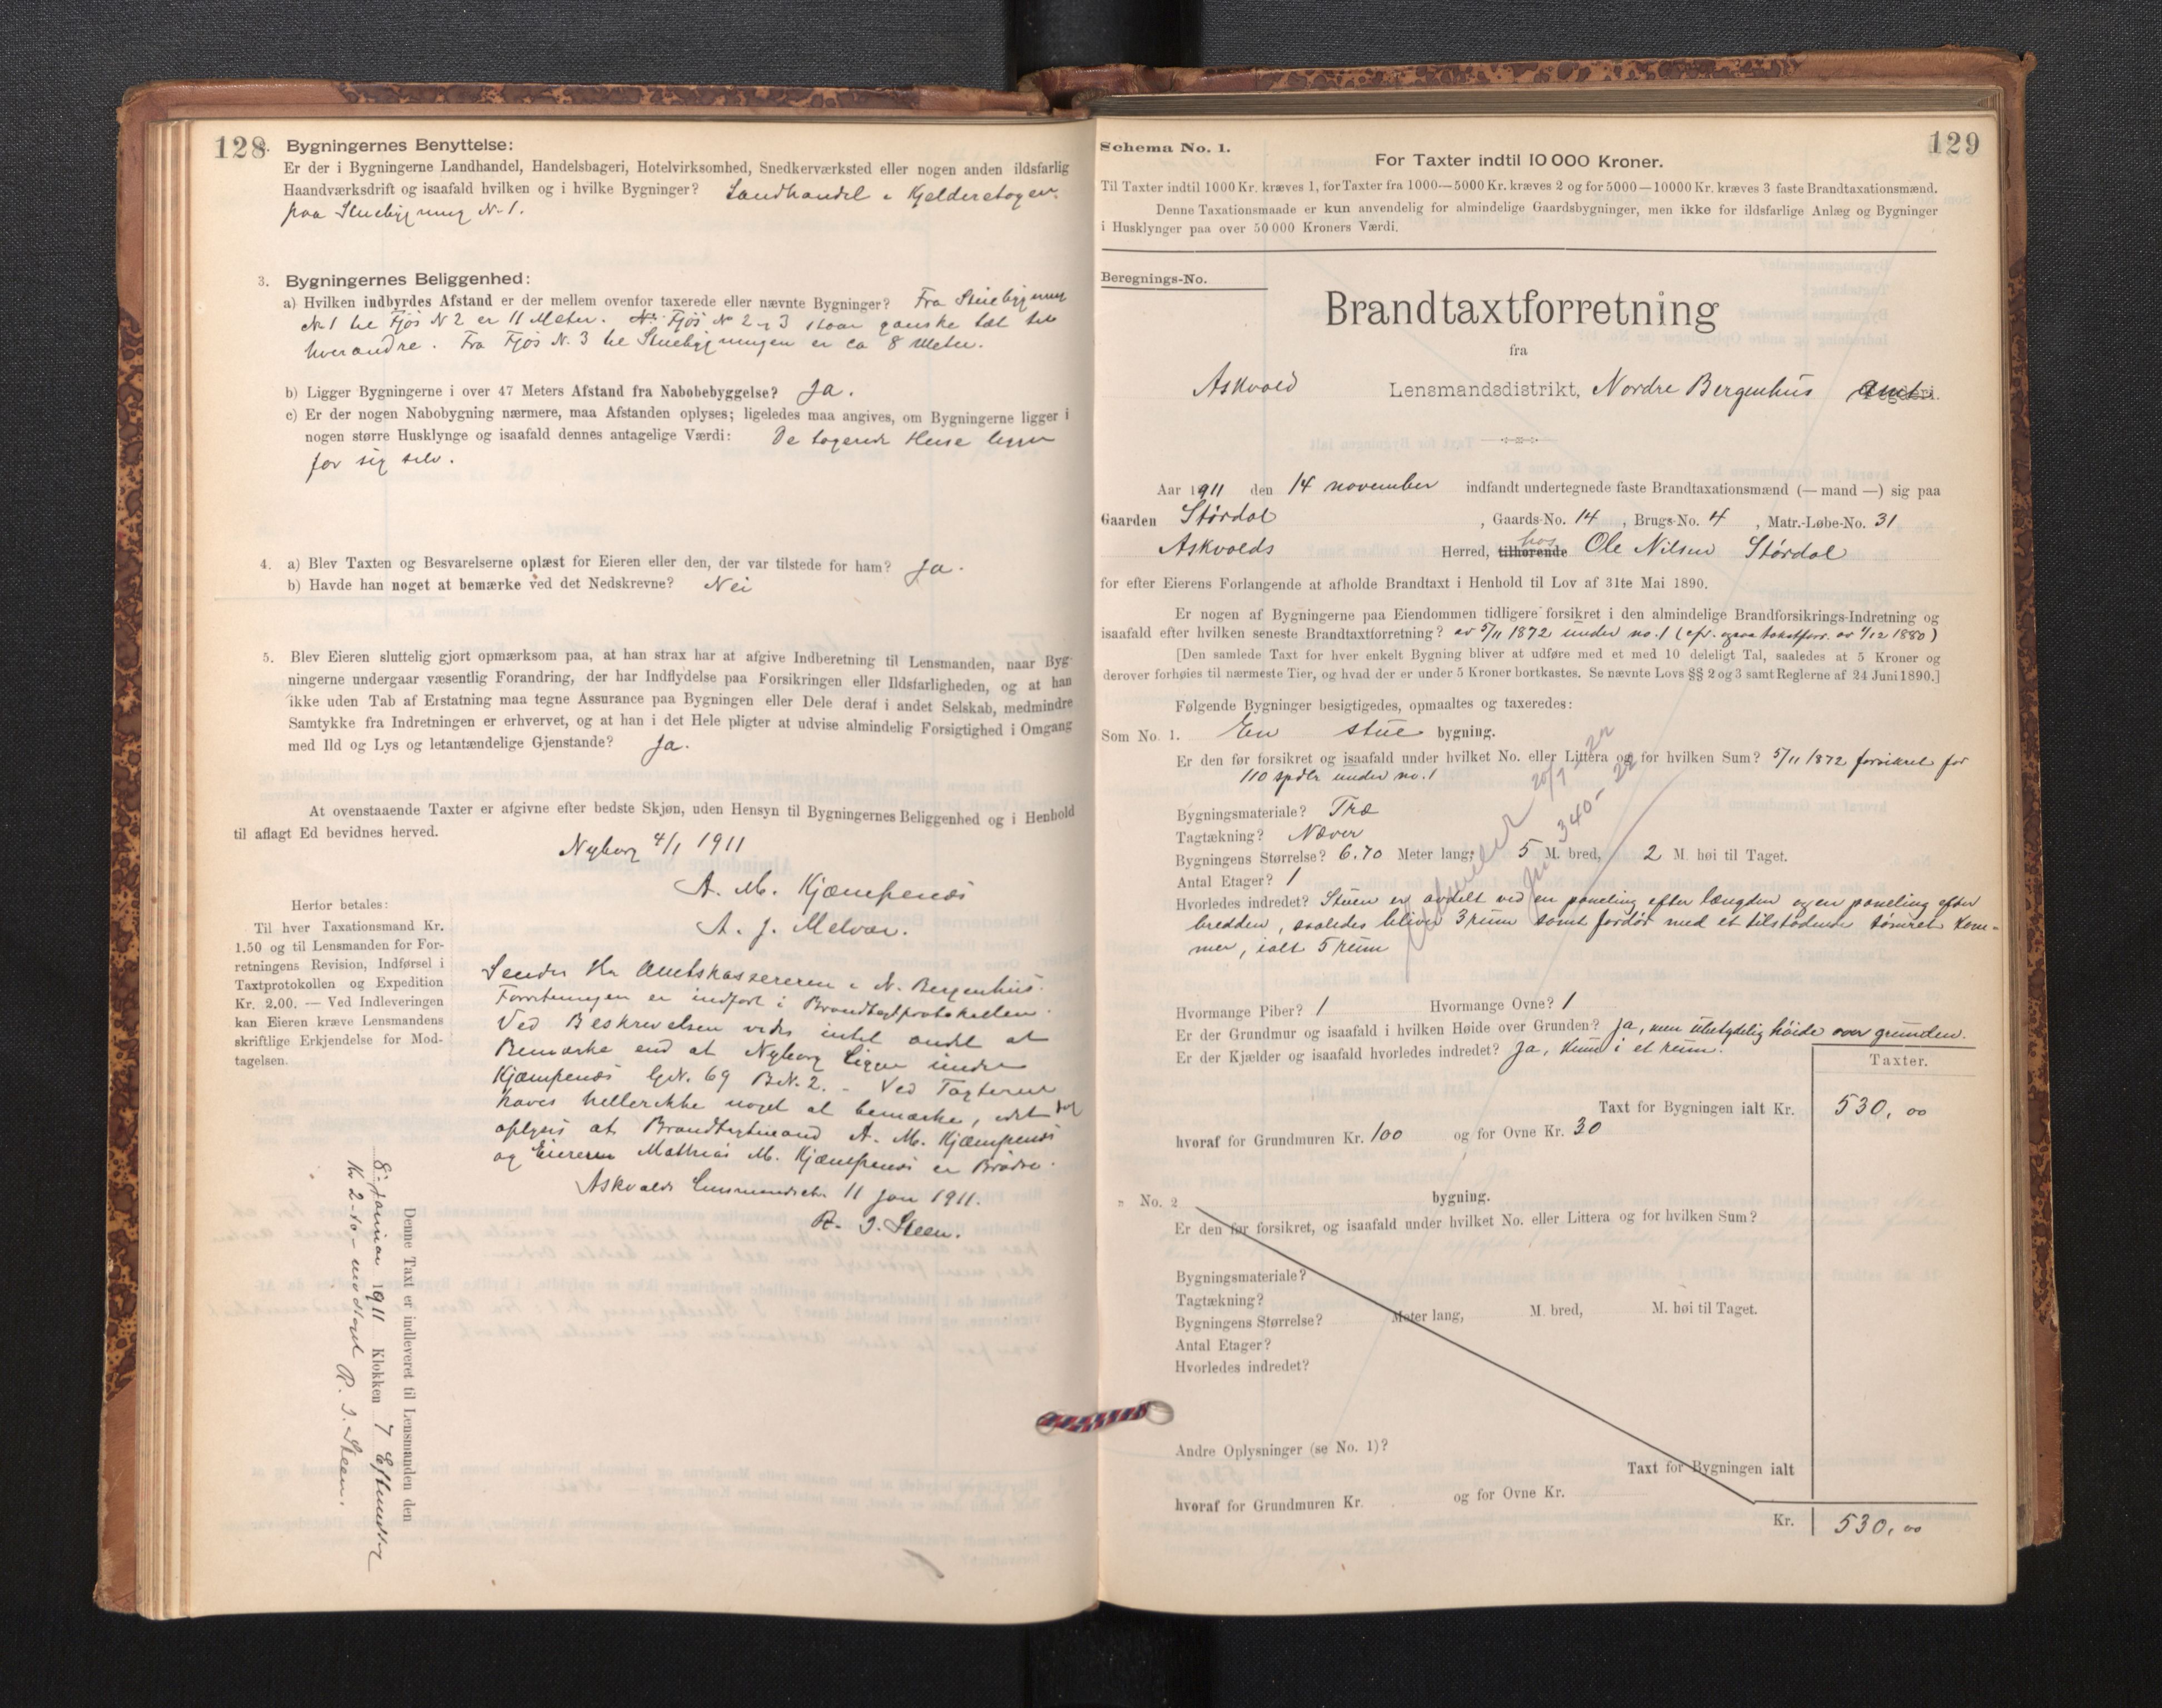 128. Bygningernes Benyttelse:
Er der i Bygningerne Landhandel, Handelsbageri, Hotelvirksomhed, Snedkerværksted eller nogen anden ildsfarlig
Haandværksdrift og isaafald hvilken og i hvilke Bygninger? Landhandel i Kjelderetagen
paa Stuebygning N. 1.
3. Bygningernes Beliggenhed:
a) Hvilken indbyrdes Afstand er der mellem ovenfor taxerede eller nævnte Bygninger? Fra Stuebygning
No 1 til Fjøs N 2 er 11 Meter. Fjøs No 2 og 3 staar ganske tæt til
hverandre. Fra Fjøs N. 3 til Stuebygningen er ca 8 Meter.
b) Ligger Bygningerne i over 47 Meters Afstand fra Nabobebyggelse? Ja.
c) Er der nogen Nabobygning nærmere, maa Afstanden oplyses; ligeledes maa angives, om Bygningerne ligger i
nogen større Husklynge og isaafald dennes antagelige Værdi: De tagerede Huse ligger
for sig selv.
4. a) Blev Taxten og Besvarelserne oplæst for Eieren eller den, der var tilstede for ham? Ja.
b) Havde han noget at bemærke ved det Nedskrevne? Nei
5. Blev Eieren sluttelig gjort opmærksom paa, at han strax har at afgive Indberetning til Lensmanden, naar Byg-
ningerne undergaar væsentlig Forandring, der har Indflydelse paa Forsikringen eller Ildsfarligheden, og at han
ikke uden Tab af Erstatning maa tegne Assurance paa Bygningen eller Dele deraf i andet Selskab, medmindre
Samtykke fra Indretningen er erhvervet, og at han i det Hele pligter at udvise almindelig Forsigtighed i Omgang
med Ild og Lys og letantændelige Gjenstande? Ja.
At ovenstaaende Taxter er afgivne efter bedste Skjøn, uden Hensyn til Bygningernes Beliggenhed og i Henhold
til aflagt Ed bevidnes herved.
Nyborg 4/1 1911
A. M. Kjæmpenes
A. J. Melvær.
Herfor betales:
Til hver Taxationsmand Kr.
1.50 og til Lensmanden for For-
retningens Revision, Indførsel i
Taxtprotokollen og Expedition
Kr. 2.00. — Ved Indleveringen
kan Eieren kræve Lensmandens
skriftlige Erkjendelse for Mod-
tagelsen.
Sendes Hr Amtskassereren i N. Bergenhus.
Forretningen er indført i Brandtaxtprotokollen.
Ved Beskrivelsen vides intet andet at
Bemærke end at Nyborg ligger under
Kjæmpenes GN. 69 BN. 2. - Ved Taxterne
haves heller ikke noget at bemærke, idet det
oplyses at Brandtaxtmand A. M. Kjæmpenes
og Eieren Mathias M. Kjæmpenes er Brødre.
Askvolds Lensmandsd. 11 Jan 1911.
R. J. Steen.
Denne Taxt er indleveret til Lensmanden den
8. januar 1911 Klokken 7 Eftermiddag
Kr 2-10- modtaget R. J. Steen.
129
Schema No. 1.
For Taxter indtil 10 000 Kroner.
Til Taxter indtil 1000 Kr. kræves 1, for Taxter fra 1000—5000 Kr. kræves 2 og for 5000—10000 Kr. kræves 3 faste Brandtaxationsmænd.
Denne Taxationsmaade er kun anvendelig for almindelige Gaardsbygninger, men ikke for ildsfarlige Anlæg og Bygninger
i Husklynger paa over 50 000 Kroners Værdi.
Beregnings-No.
Brandtaxtforretning
fra
Askvold Lensmandsdistrikt, Nordre Bergenhus amt Fogderi.
Aar 1911 den 14 november indfandt undertegnede faste Brandtaxationsmænd (— mand —) sig paa
Gaarden Størdal, Gaards-No. 14, Brugs-No. 4, Matr.-Løbe-No. 31
Askvolds Herred, tilhørende hos Ole Nilsen Størdal
for efter Eierens Forlangende at afholde Brandtaxt i Henhold til Lov af 31te Mai 1890.
Er nogen af Bygningerne paa Eiendommen tidligere forsikret i den almindelige Brandforsikrings-Indretning og
isaafald efter hvilken seneste Brandtaxtforretning? av 5/11 1872 under no. 1 (cfr. ogsaa takstforr. av 1/12 1880)
[Den samlede Taxt for hver enkelt Bygning bliver at udføre med et med 10 deleligt Tal, saaledes at 5 Kroner og
derover forhøies til nærmeste Tier, og hvad der er under 5 Kroner bortkastes. Se nævnte Lovs §§ 2 og 3 samt Reglerne af 24 Juni 1890.]
Følgende Bygninger besigtigedes, opmaaltes og taxeredes:
Som No. 1. En stue bygning.
Er den før forsikret og isaafald under hvilket No. eller Littera og for hvilken Sum? 5/11 1872 forsikret for
110 spdlr under no. 1
Bygningsmateriale? Træ
Tagtækning? Næver
Bygningens Størrelse? 6.70 Meter lang, 5 M. bred, 2 M. høi til Taget.
Antal Etager? 1
Hvorledes indredet? Stuen er avdelt ved en paneling efter længden og en paneling efter
bredden, saaledes bliver 3 rum samt fordør med et tilstødende tømret kam-
mer, ialt 5 rum
Hvormange Piber? 1 Hvormange Ovne? 1
Er der Grundmur og isaafald i hvilken Høide over Grunden? Ja, men ubetydelig høide over grunden.
Er der Kjælder og isaafald hvorledes indredet? Ja, kun i et rum.
Taxter.
Taxt for Bygningen ialt Kr. 530,00
hvoraf for Grundmuren Kr. 100 og for Ovne Kr. 30
" No. 2 bygning.
Er den før forsikret, og isaafald under hvilket No. eller Littera og for hvilken Sum?
Bygningsmateriale?
Tagtækning?
Bygningens Størrelse? Meter lang, M. bred, M. høi til Taget.
Antal Etager?
Hvorledes indredet?
Andre Oplysninger (se No. 1)?
Taxt for Bygningen ialt
hvoraf for Grundmuren Kr. og for Ovne Kr.
Kr. 530,00